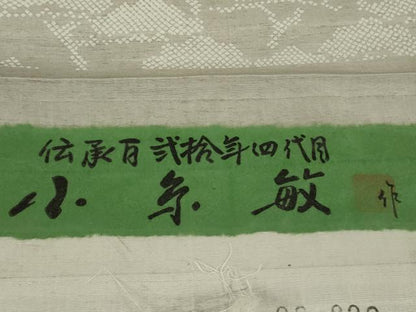 伝承百弐拾年四代目
小糸敏 作